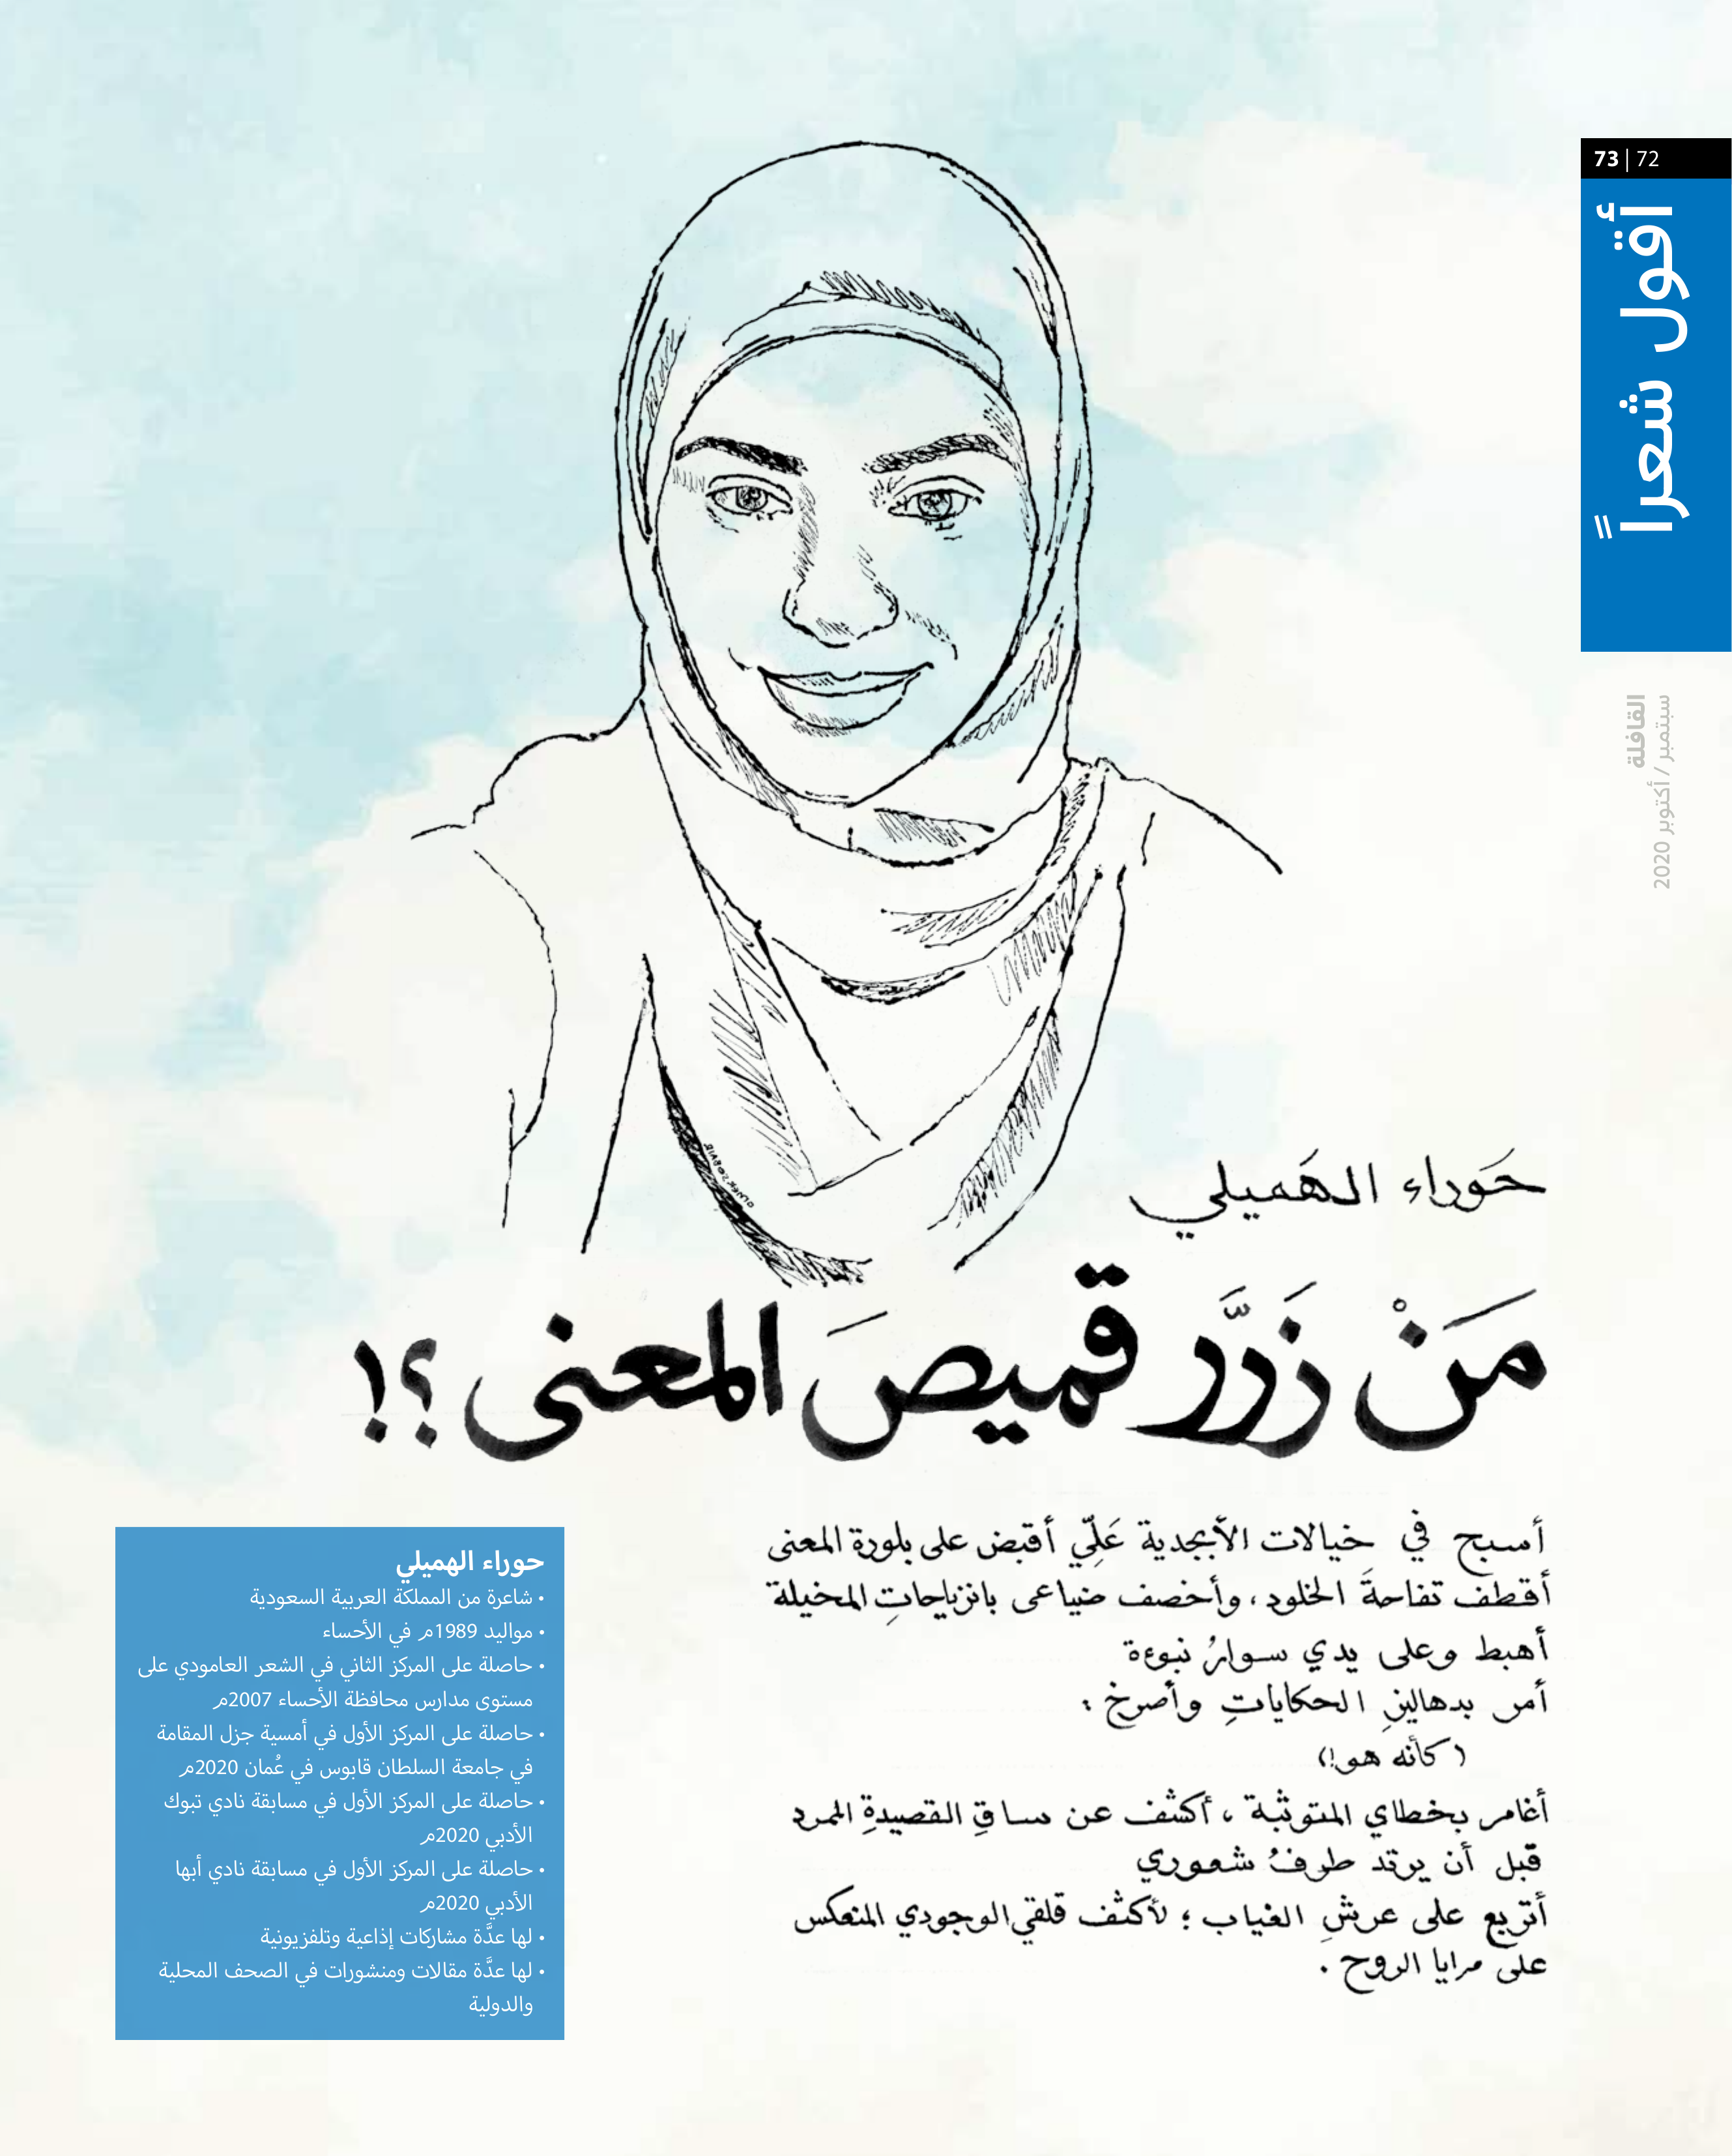 73 | 72
أقول شعراً
القافلة
سبتمبر / أكتوبر 2020
حَوراء الهَميلي
مَنْ زَرَّر قميصَ المعنى ؟!
أسبح في خيالات الأبجدية عَلِّي أقبض على بلورة المعنى
أقطف تفاحةَ الخلود، وأخصف ضياعي بانزياحاتِ المخيلة
أهبط وعلى يدي سوارُ نبوءة
أمر بدهاليزِ الحكاياتِ وأصرخ :
(كأنه هو!)
أغامر بخطاي المتوثبة ، أكشف عن ساقِ القصيدةِ الممرد
قبل أن يرتد طرفُ شعوري
أتربع على عرشِ الغياب ؛ لأكثف قلقي الوجودي المنعكس
على مرايا الروح .
حوراء الهميلي
• شاعرة من المملكة العربية السعودية
• مواليد 1989م في الأحساء
• حاصلة على المركز الثاني في الشعر العامودي على
مستوى مدارس محافظة الأحساء 2007م
• حاصلة على المركز الأول في أمسية جزل المقامة
في جامعة السلطان قابوس في عُمان 2020م
• حاصلة على المركز الأول في مسابقة نادي تبوك
الأدبي 2020م
• حاصلة على المركز الأول في مسابقة نادي أبها
الأدبي 2020م
• لها عدَّة مشاركات إذاعية وتلفزيونية
• لها عدَّة مقالات ومنشورات في الصحف المحلية
والدولية